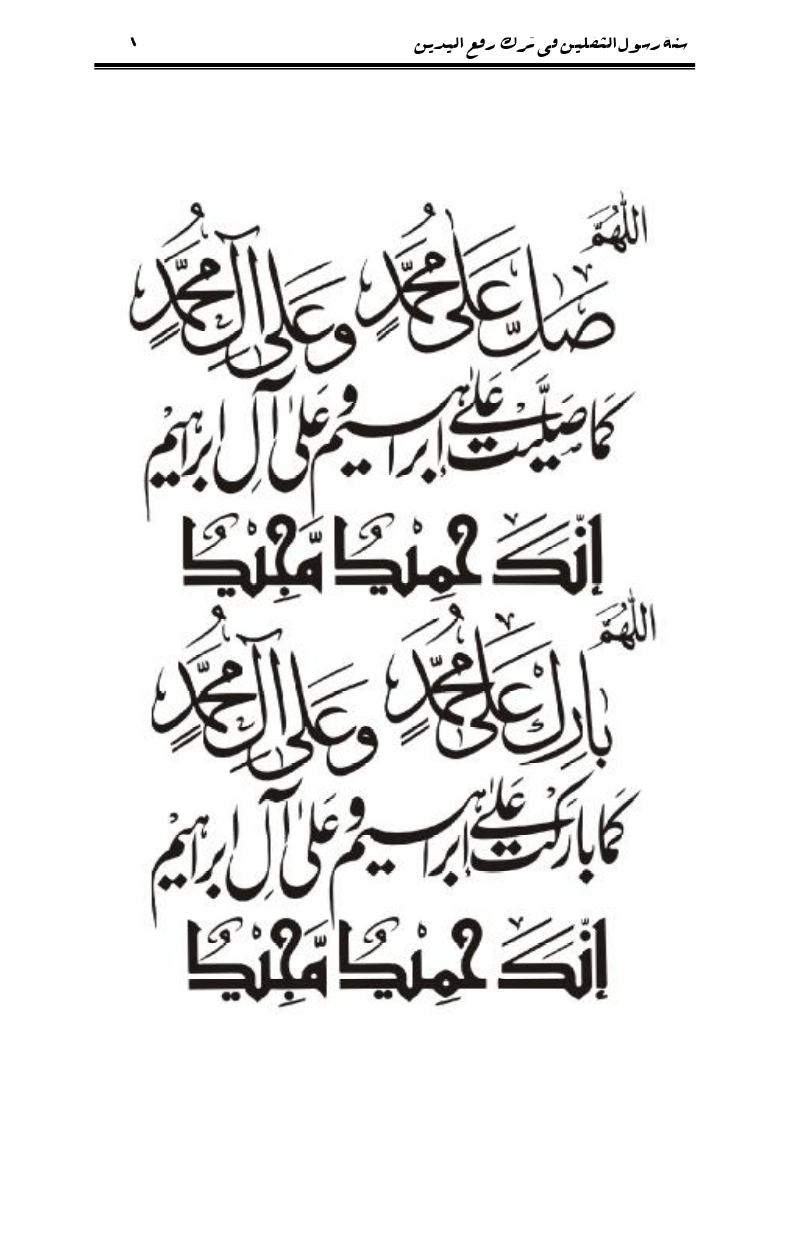 سنة رسول الثقلين فى ترك رفع اليدين ١
اللّٰهُمَّ
صَلِّ عَلىٰ مُحَمَّدٍ وَعَلىٰ آلِ مُحَمَّدٍ
كَمَا صَلَّيْتَ عَلىٰ إِبْرَاهِيْمَ وَعَلىٰ آلِ إِبْرَاهِيْمَ
إِنَّكَ حَمِيْدٌ مَّجِيْدٌ
اللّٰهُمَّ
بَارِكْ عَلىٰ مُحَمَّدٍ وَعَلىٰ آلِ مُحَمَّدٍ
كَمَا بَارَكْتَ عَلىٰ إِبْرَاهِيْمَ وَعَلىٰ آلِ إِبْرَاهِيْمَ
إِنَّكَ حَمِيْدٌ مَّجِيْدٌ